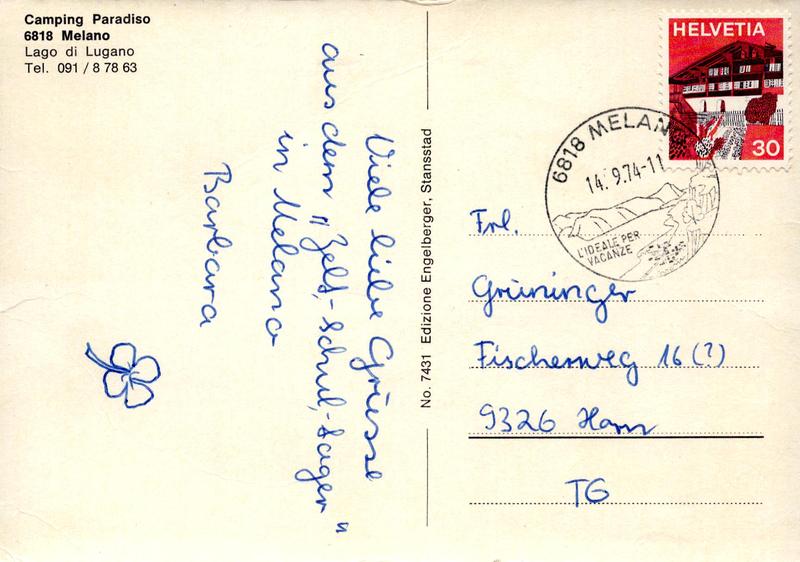 Camping Paradiso
6818 Melano
Lago di Lugano
Tel. 091 / 8 78 63
Viele liebe Grüsse
aus dem "Zelt,-Schul,-Lager"
in Melano
Barbara
No. 7431 Edizione Engelberger, Stansstad
HELVETIA
30
6818 MELAN
14. 9.74-11
L'IDEALE PER
VACANZE
Frl.
Grüninger
Fischerweg 16 (?)
9326 Horn
TG